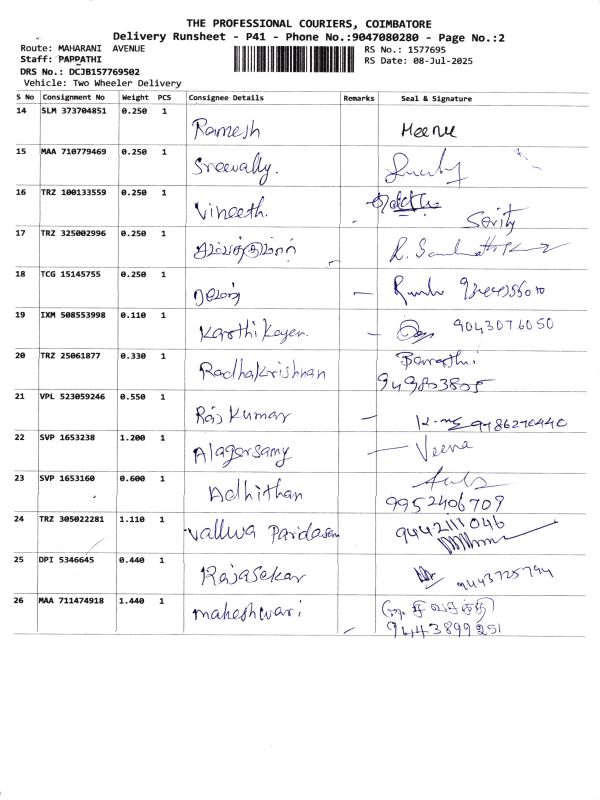 THE PROFESSIONAL COURIERS, COIMBATORE
Delivery Runsheet - P41 - Phone No.:9047080280 - Page No.:2
Route: MAHARANI AVENUE RS No.: 1577695
Staff: PAPPATHI RS Date: 08-Jul-2025
DRS No.: DCJB157769502
Vehicle: Two Wheeler Delivery
S No Consignment No Weight PCS Consignee Details Remarks Seal & Signature
14 SLM 373704851 0.250 1 Ramesh Meenu
15 MAA 710779469 0.250 1 Sreevally.
16 TRZ 100133559 0.250 1 Vineeth.
17 TRZ 325002996 0.250 1 சம்பத்குமார்
18 TCG 15145755 0.250 1 ரமேஷ் —
19 IXM 508553998 0.110 1 Karthikeyen. — 9043076050
20 TRZ 25061877 0.330 1 Radhakrishnan Barathi.
949803805
21 VPL 523059246 0.550 1 Rajkumar —
22 SVP 1653238 1.200 1 Alagarsamy — Veena
23 SVP 1653160 0.600 1 Adhithan
9952406709
24 TRZ 305022281 1.110 1 9442111046
25 DPI 5346645 0.440 1 Rajasekar 9443725794
26 MAA 711474918 1.440 1 maheshwari சிவசக்தி
9443899251